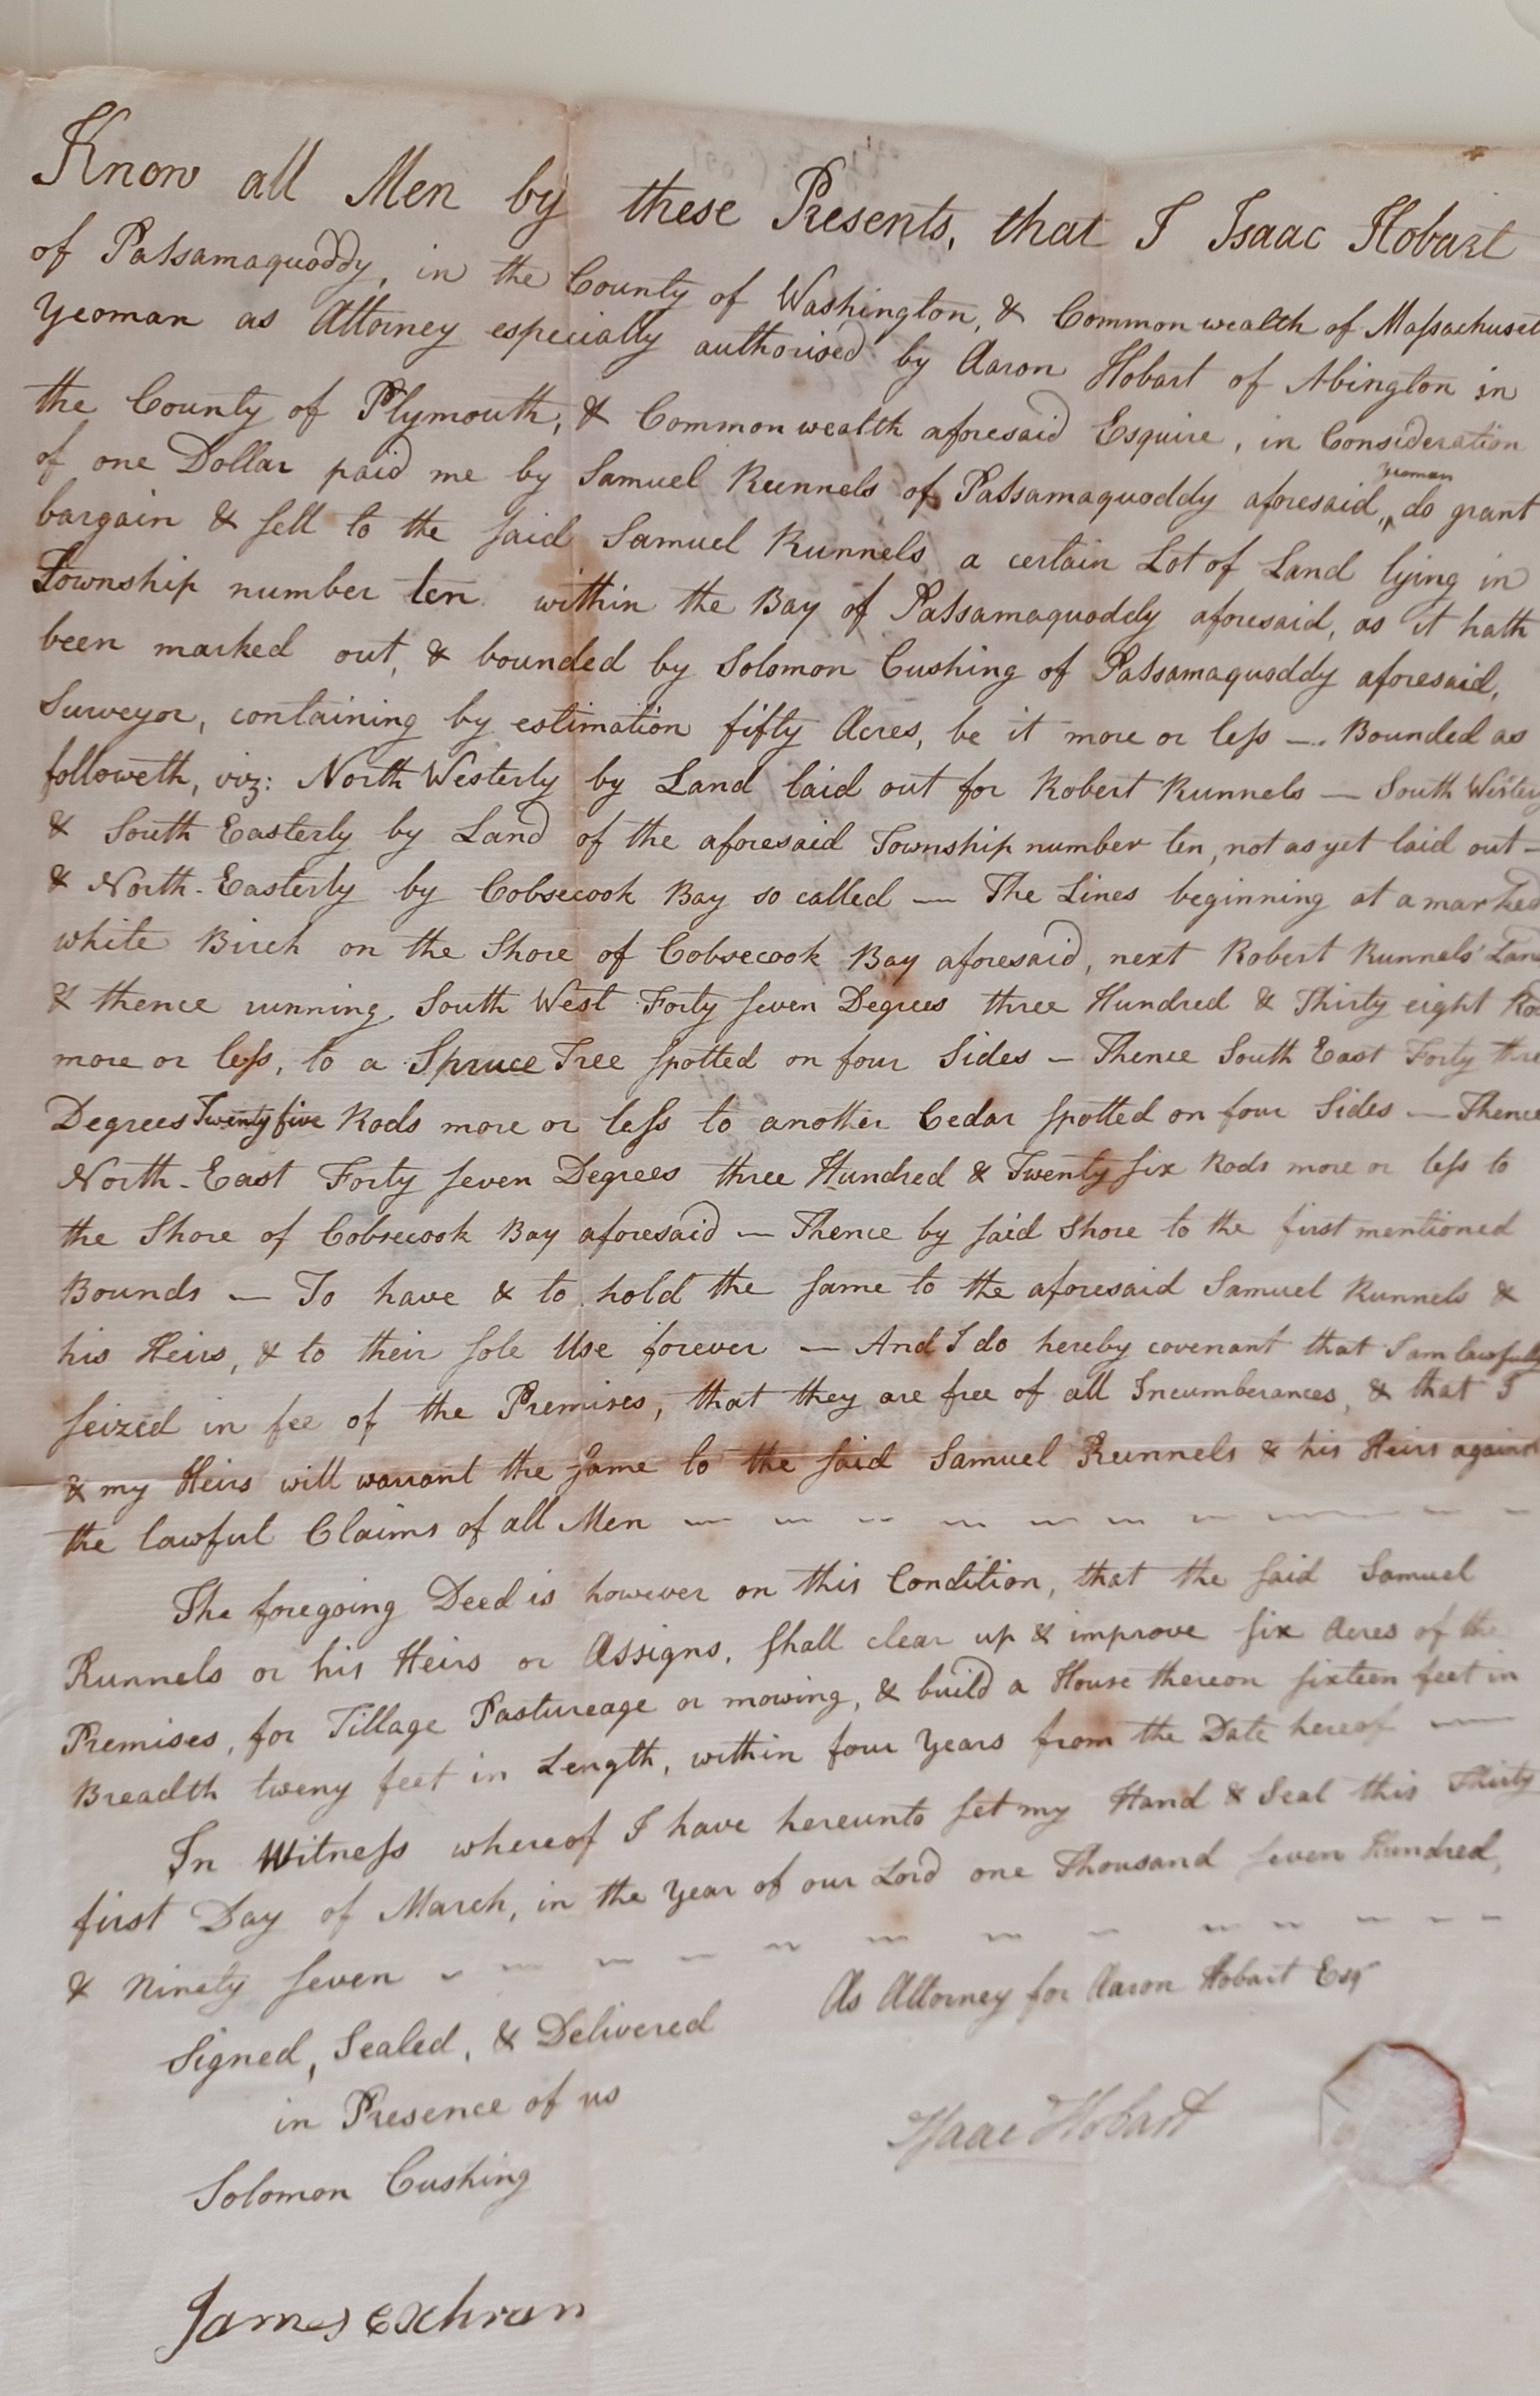 Know all Men by these Presents, that I Isaac Hobart
of Passamaquoddy, in the County of Washington, & Commonwealth of Massachuset
Yeoman as Attorney especially authorised by Aaron Hobart of Abington in
the County of Plymouth, & Commonwealth aforesaid Esquire, in Consideration
of one Dollar paid me by Samuel Runnels of Passamaquoddy aforesaid, yeoman do grant
bargain & sell to the said Samuel Runnels a certain Lot of Land lying in
Township number ten within the Bay of Passamaquoddy aforesaid, as it hath
been marked out, & bounded by Solomon Cushing of Passamaquoddy aforesaid,
Surveyor, containing by estimation fifty Acres, be it more or less — Bounded as
followeth, viz: North Westerly by Land laid out for Robert Runnels — South Wester
& South Easterly by Land of the aforesaid Township number ten, not as yet laid out —
& North-Easterly by Cobsecook Bay so called — The Lines beginning at a marked
white Birch on the Shore of Cobsecook Bay aforesaid, next Robert Runnels' Land
& thence running South West Forty seven Degrees three Hundred & Thirty eight Ro
more or less, to a Spruce Tree spotted on four Sides — Thence South East Forty thre
Degrees Twenty five Rods more or less to another Cedar spotted on four Sides — Thence
North-East Forty seven Degrees three Hundred & Twenty six Rods more or less to
the Shore of Cobsecook Bay aforesaid — Thence by said Shore to the first mentioned
Bounds — To have & to hold the same to the aforesaid Samuel Runnels &
his Heirs, & to their sole Use forever — And I do hereby covenant that I am lawfully
seized in fee of the Premises, that they are free of all Incumberances, & that I
& my Heirs will warrant the same to the said Samuel Runnels & his Heirs against
the lawful Claims of all Men
The foregoing Deed is however on this Condition, that the said Samuel
Runnels or his Heirs or Assigns, shall clear up & improve six Acres of the
Premises, for Tillage Pastureage or mowing, & build a House thereon sixteen feet in
Breadth tweny feet in Length, within four Years from the Date hereof —
In Witness whereof I have hereunto set my Hand & Seal this Thirty
first Day of March, in the Year of our Lord one Thousand seven Hundred,
& Ninety seven
As Attorney for Aaron Hobart Esqr
Signed, Sealed, & Delivered
in Presence of us
Isaac Hobart
Solomon Cushing
James Cochran